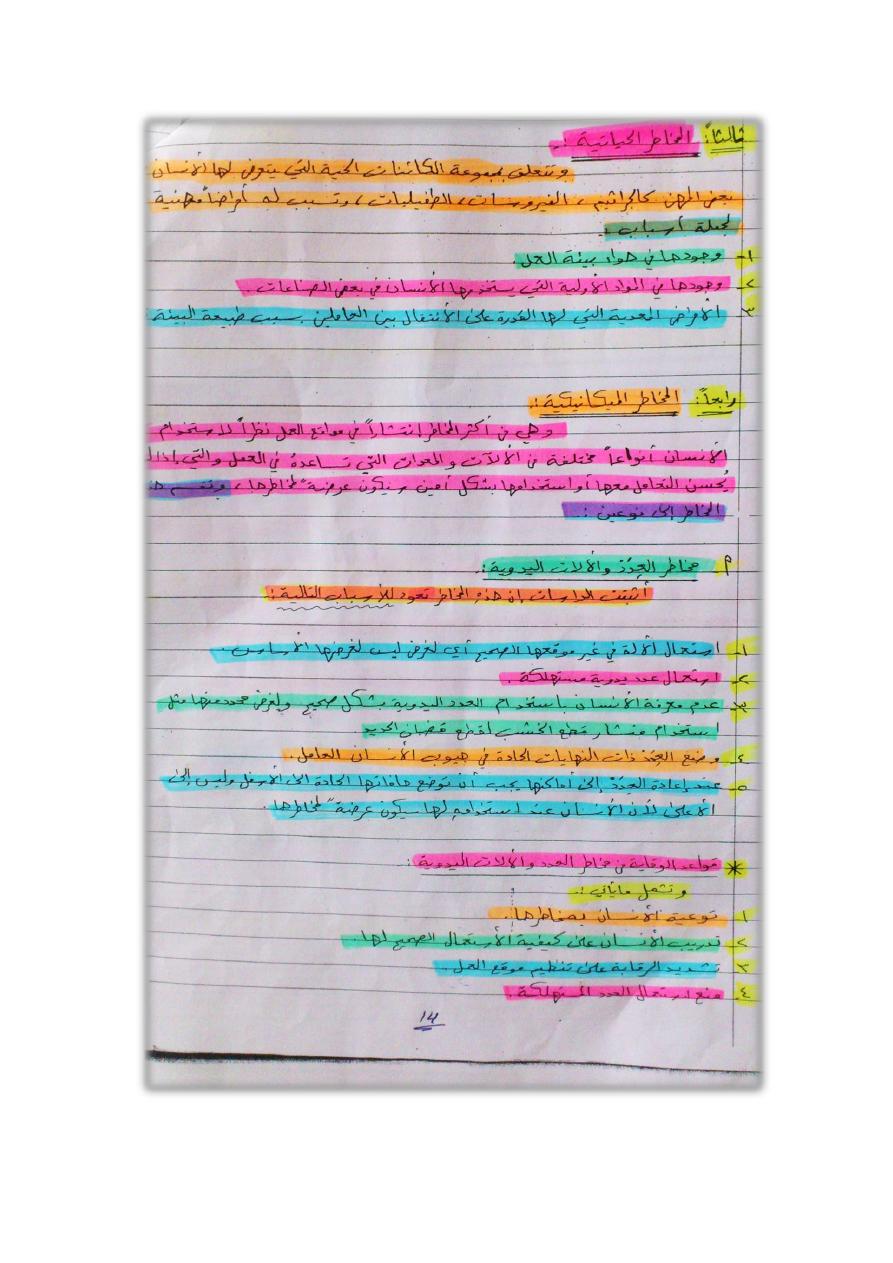 ثالثاً: المخاطر الحياتية :.
وتتعلق بمجموعة الكائنات الحية التي يتعرض لها الأنسان
بعض المهن كالجراثيم ، الفيروسات ، الطفيليات ، وتسبب له أمراضاً مهنية
لجملة أسباب :
١- وجودها في هواء بيئة العمل.
٢- وجودها في المواد الأولية التي يستخدمها الأنسان في بعض الصناعات .
٣- الأمراض المعدية التي لها القدرة على الأنتقال بين العاملين بسبب طبيعة البيئة
رابعاً: المخاطر الميكانيكية :.
وهي من أكثر المخاطر إنتشاراً في مواقع العمل نظراً لاستخدام
الأنسان أنواعاً مختلفة من الآلات و المعدات التي تساعدهُ في العمل والتي إذا لـ
يُحسن التعامل معها أو استخدامها بشكل أمين سيكون عرضة لمخاطرها ، وتقسم هذ
المخاطر إلى نوعين :.
أ- مخاطر العِدَدْ والألات اليدوية :.
أثبتت الدراسات إن هذه المخاطر تعود للأسباب التالية :
١- إستعمال الألة في غير موقعها الصحيح أي لغرض ليس لغرضها الأساس .
٢- إستعمال عدد يدوية مستهلكة .
٣- عدم معرفة الأنسان بأستخدام العدد اليدوية بشكل صحيح ولغرض محدد منها مثل
إستخدام منشار قطع الخشب لقطع قضبان الحديد
٤- وضع العِدَدْ ذات النهايات الحادة في جيوب الأنسان العامل .
٥- عند إعادة العِدَدْ إلى أماكنها يجب أن توضع حافاتها الحادة الى الأسفل وليس إلى
الأعلى لأن الأنسان عند إستخدامهِ لها سيكون عرضة لمخاطرها .
* قواعد الوقاية من مخاطر العدد والألات اليدوية :
وتشمل مايأتي :.
١- توعية الأنسان بمخاطرها .
٢- تدريب الأنسان على كيفية الأستعمال الصحيح لها .
٣- تشديد الرقابة على تنظيم موقع العمل .
٤- منع إستعمال العدد المستهلكة .
١٤